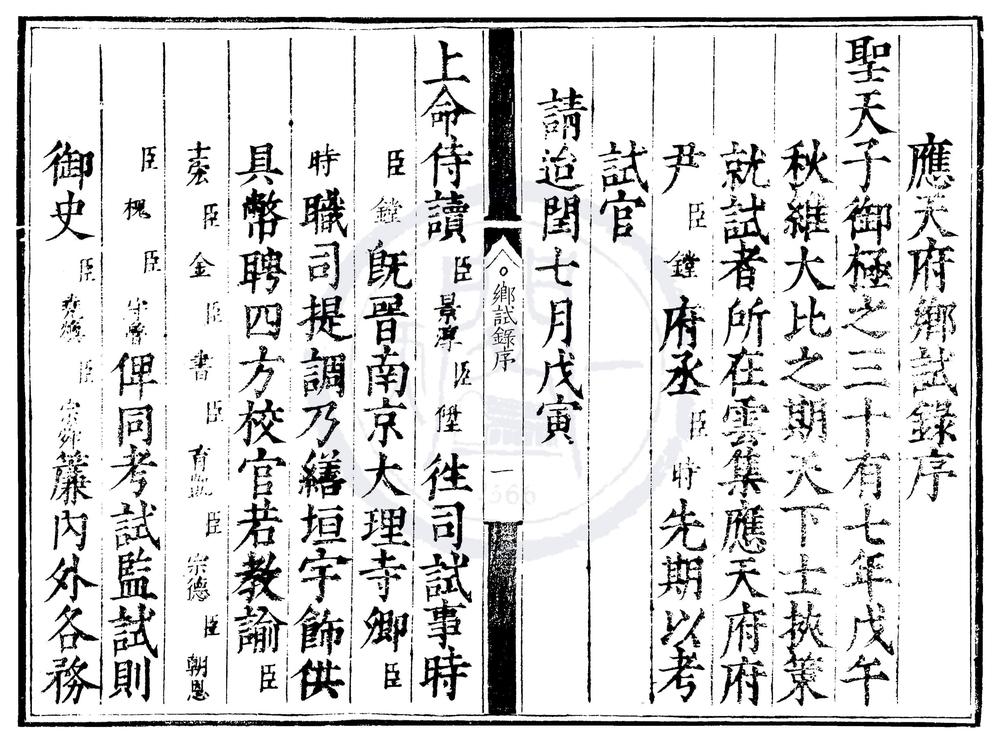 應天府鄉試錄序
聖天子御極之三十有七年戊午
秋維大比之期天下士挾策
就試者所在雲集應天府府
尹臣鏜府丞臣時先期以考
試官
請迨閏七月戊寅
鄉試錄序
一
上命侍讀臣景淳臣陞徃司試事時
臣鏜旣晋南京大理寺卿臣
時職司提調乃繕垣宇飾供
具幣聘四方校官若教諭臣
臣金臣書臣育臣宗德臣朝恩
臣槐臣守魯俾同考試監試則
御史臣堯臣宗簾內外各務